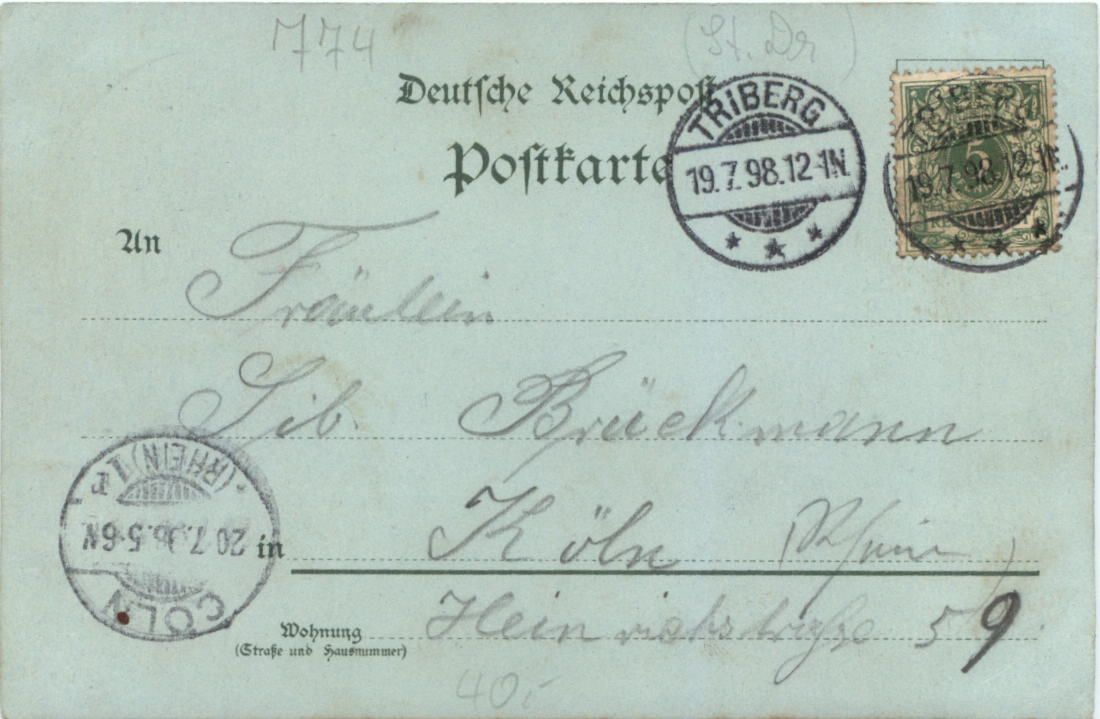 774
(St. Dr)
Deutsche Reichspost
Postkarte
TRIBERG
19.7.98.12-1N.
5
19.7.98.12-1N.
An
Fräulein
Sib. Brückmann
in Köln (Rhein)
Wohnung Heinrichstraße 59
(Straße und Hausnummer)
CÖLN
20.7.98.5-6N
(RHEIN) 1
40.-